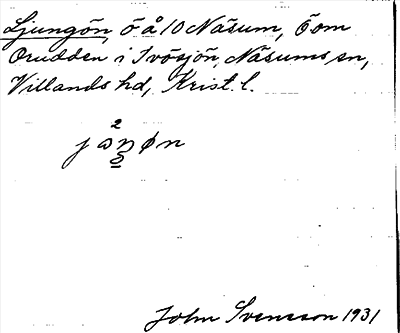 Ljungön, ö å 10 Näsum, Ö om
Orudden i Ivösjön, Näsums sn,
Villands hd, Krist. l.
John Svensson 1931